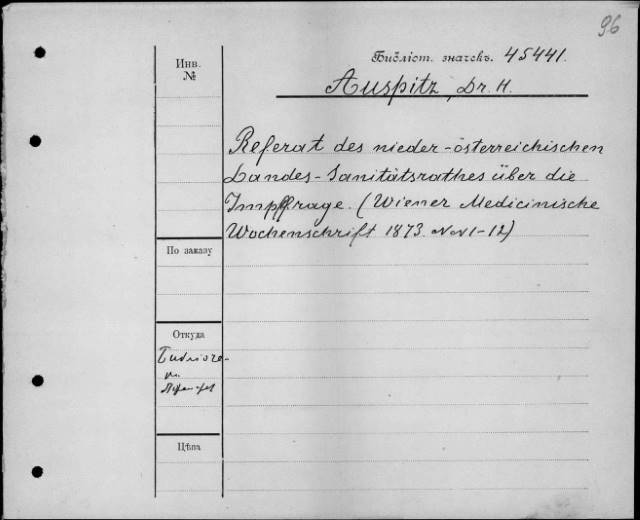 96
Инв.
№
Библіот. значекъ. 45441.
Auspitz, Dr. H.
Referat des nieder-österreichischen
Landes-Sanitätsrathes über die
Impffrage. (Wiener Medicinische
Wochenschrift 1873. NN 1-12)
По заказу
Откуда
Цѣна